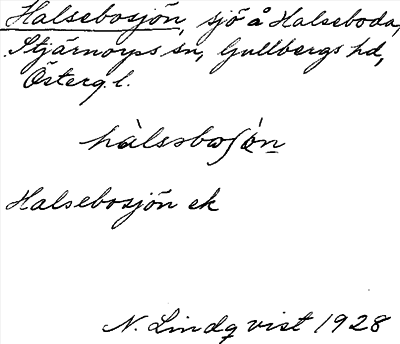 Halsebosjön, sjö å Halseboda,
Stjärnorps sn, Gullbergs hd,
Österg. l.
hàlsəbωʃón
Halsebosjön ek
N. Lindqvist 1928